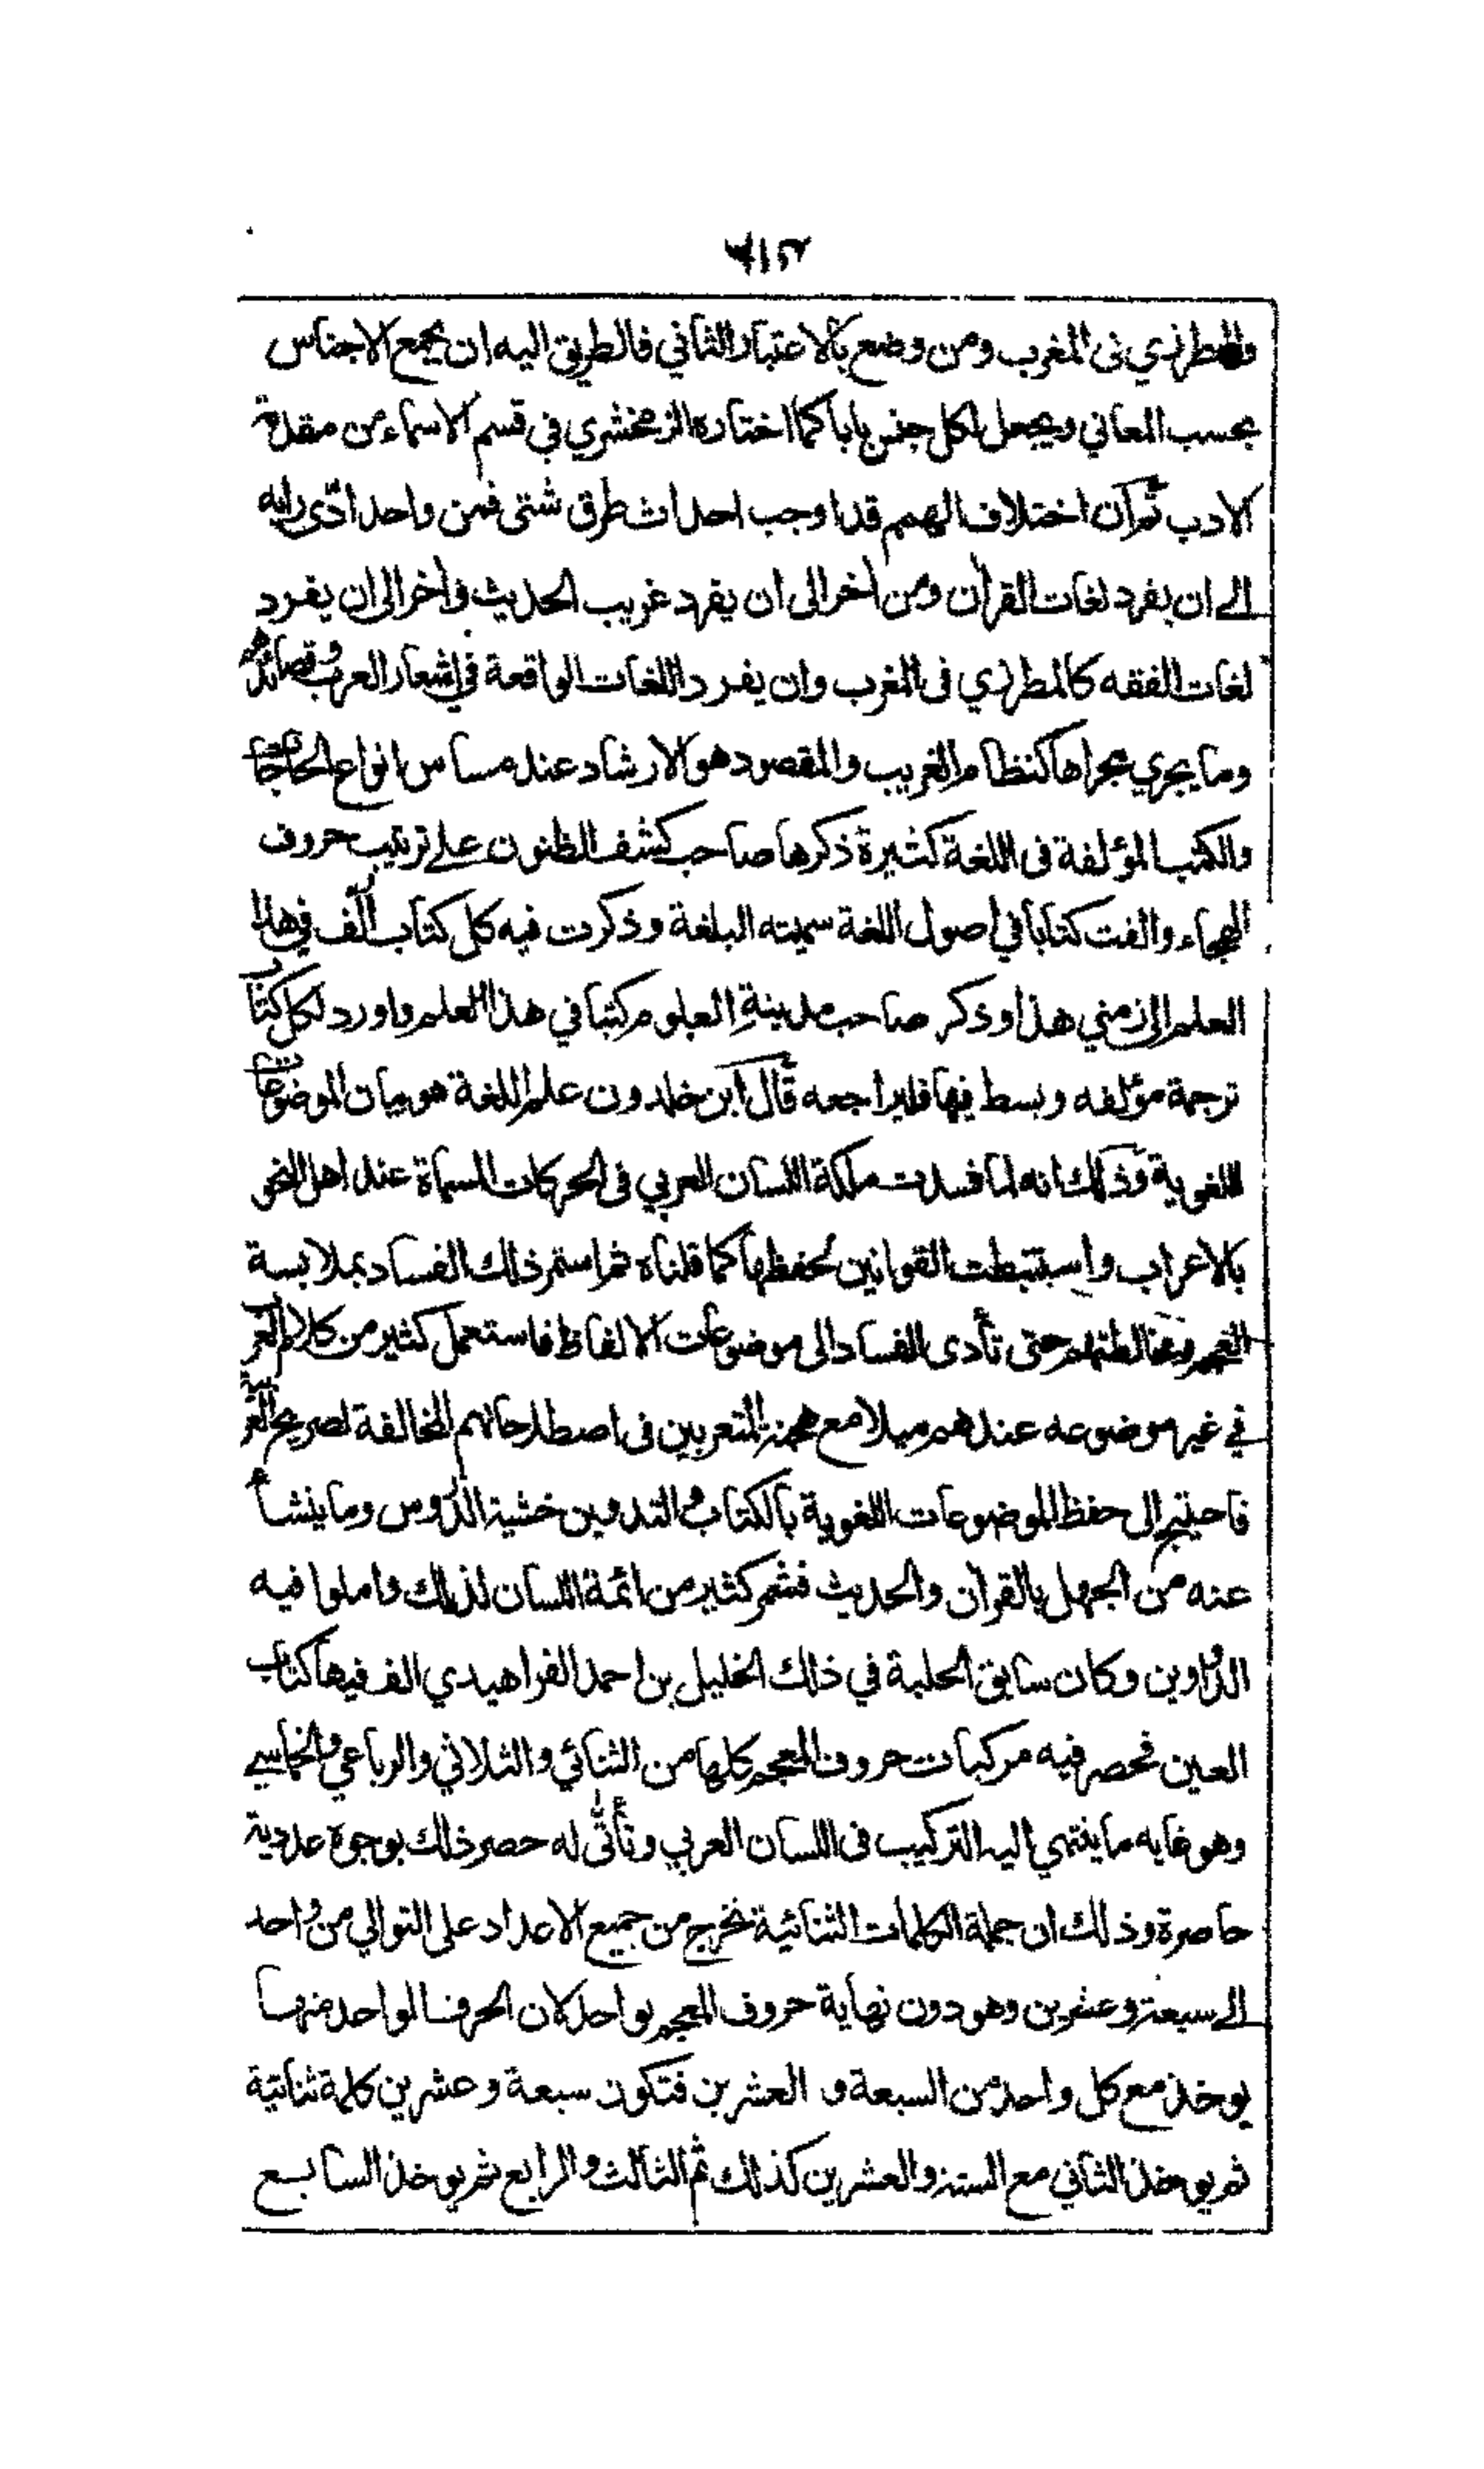 والمطرزي فى المغرب ومن وضع بالاعتبار الثاني فالطريق اليه ان يجمع الاجناس
بحسب المعاني ويجعل لكل جنس بابا كما اختاره الزمخشري في قسم الاسماء من مقدمة
الادب ثم ان اختلاف الهمم قد اوجب احداث طرق شتى فمن واحد ادّى رايه
الى ان يفرد لغات القرآن ومن اخر الى ان يفرد غريب الحديث واخر الى ان يفرد
لغات الفقه كالمطرزي فى المغرب وان يفرد اللغات الواقعة في اشعار العرب وقصائدهم
وما يجري مجراها كنظام الغريب والمقصود هو الارشاد عند مساس انواع الحاجات
والكتب المؤلفة فى اللغة كثيرة ذكرها صاحب كشف الظنون على ترتيب حروف
الهجاء والفت كتابا في اصول اللغة سميته البلغة وذكرت فيه كل كتاب ألّف في هذا
العلم الى زمني هذا وذكر صاحب مدينة العلوم كتبا في هذا العلم واورد لكل كتاب
ترجمة مؤلفه وبسط فيها فليراجعه قال ابن خلدون علم اللغة هو بيان الموضوعات
اللغوية وذلك انه لما فسدت ملكة اللسان العربي فى الحركات المسماة عند اهل النحو
بالاعراب واستنبطت القوانين لحفظها كما قلناه ثم استمر ذلك الفساد بملابسة
العجم ومخالطتهم حتى تأدى الفساد الى موضوعات الالفاظ فاستعمل كثير من كلام العرب
في غير موضوعه عندهم ميلا مع هجنة المتعربين فى اصطلاحاتهم المخالفة لصريح العربية
فاحتيج الى حفظ الموضوعات اللغوية بالكتاب والتدوين خشية الدروس وما ينشأ
عنه من الجهل بالقرآن والحديث فشمر كثير من ائمة اللسان لذلك واملوا فيه
الدواوين وكان سابق الحلبة في ذلك الخليل بن احمد الفراهيدي الف فيها كتاب
العين فحصر فيه مركبات حروف المعجم كلها من الثنائي والثلاثي والرباعي والخماسي
وهو غايه ما ينتهي اليه التركيب فى اللسان العربي وتأتّى له حصر ذلك بوجوه عددية
حاصرة وذلك ان جملة الكلمات الثنائية تخرج من جميع الاعداد على التوالي من واحد
الى سبعة وعشرين وهو دون نهاية حروف المعجم بواحد لان الحرف الواحد منها
يوخذ مع كل واحد من السبعة و العشرين فتكون سبعة وعشرين كلمة ثنائية
ثم يوخذ الثاني مع الستة والعشرين كذلك ثم الثالث والرابع ثم يوخذ السابع